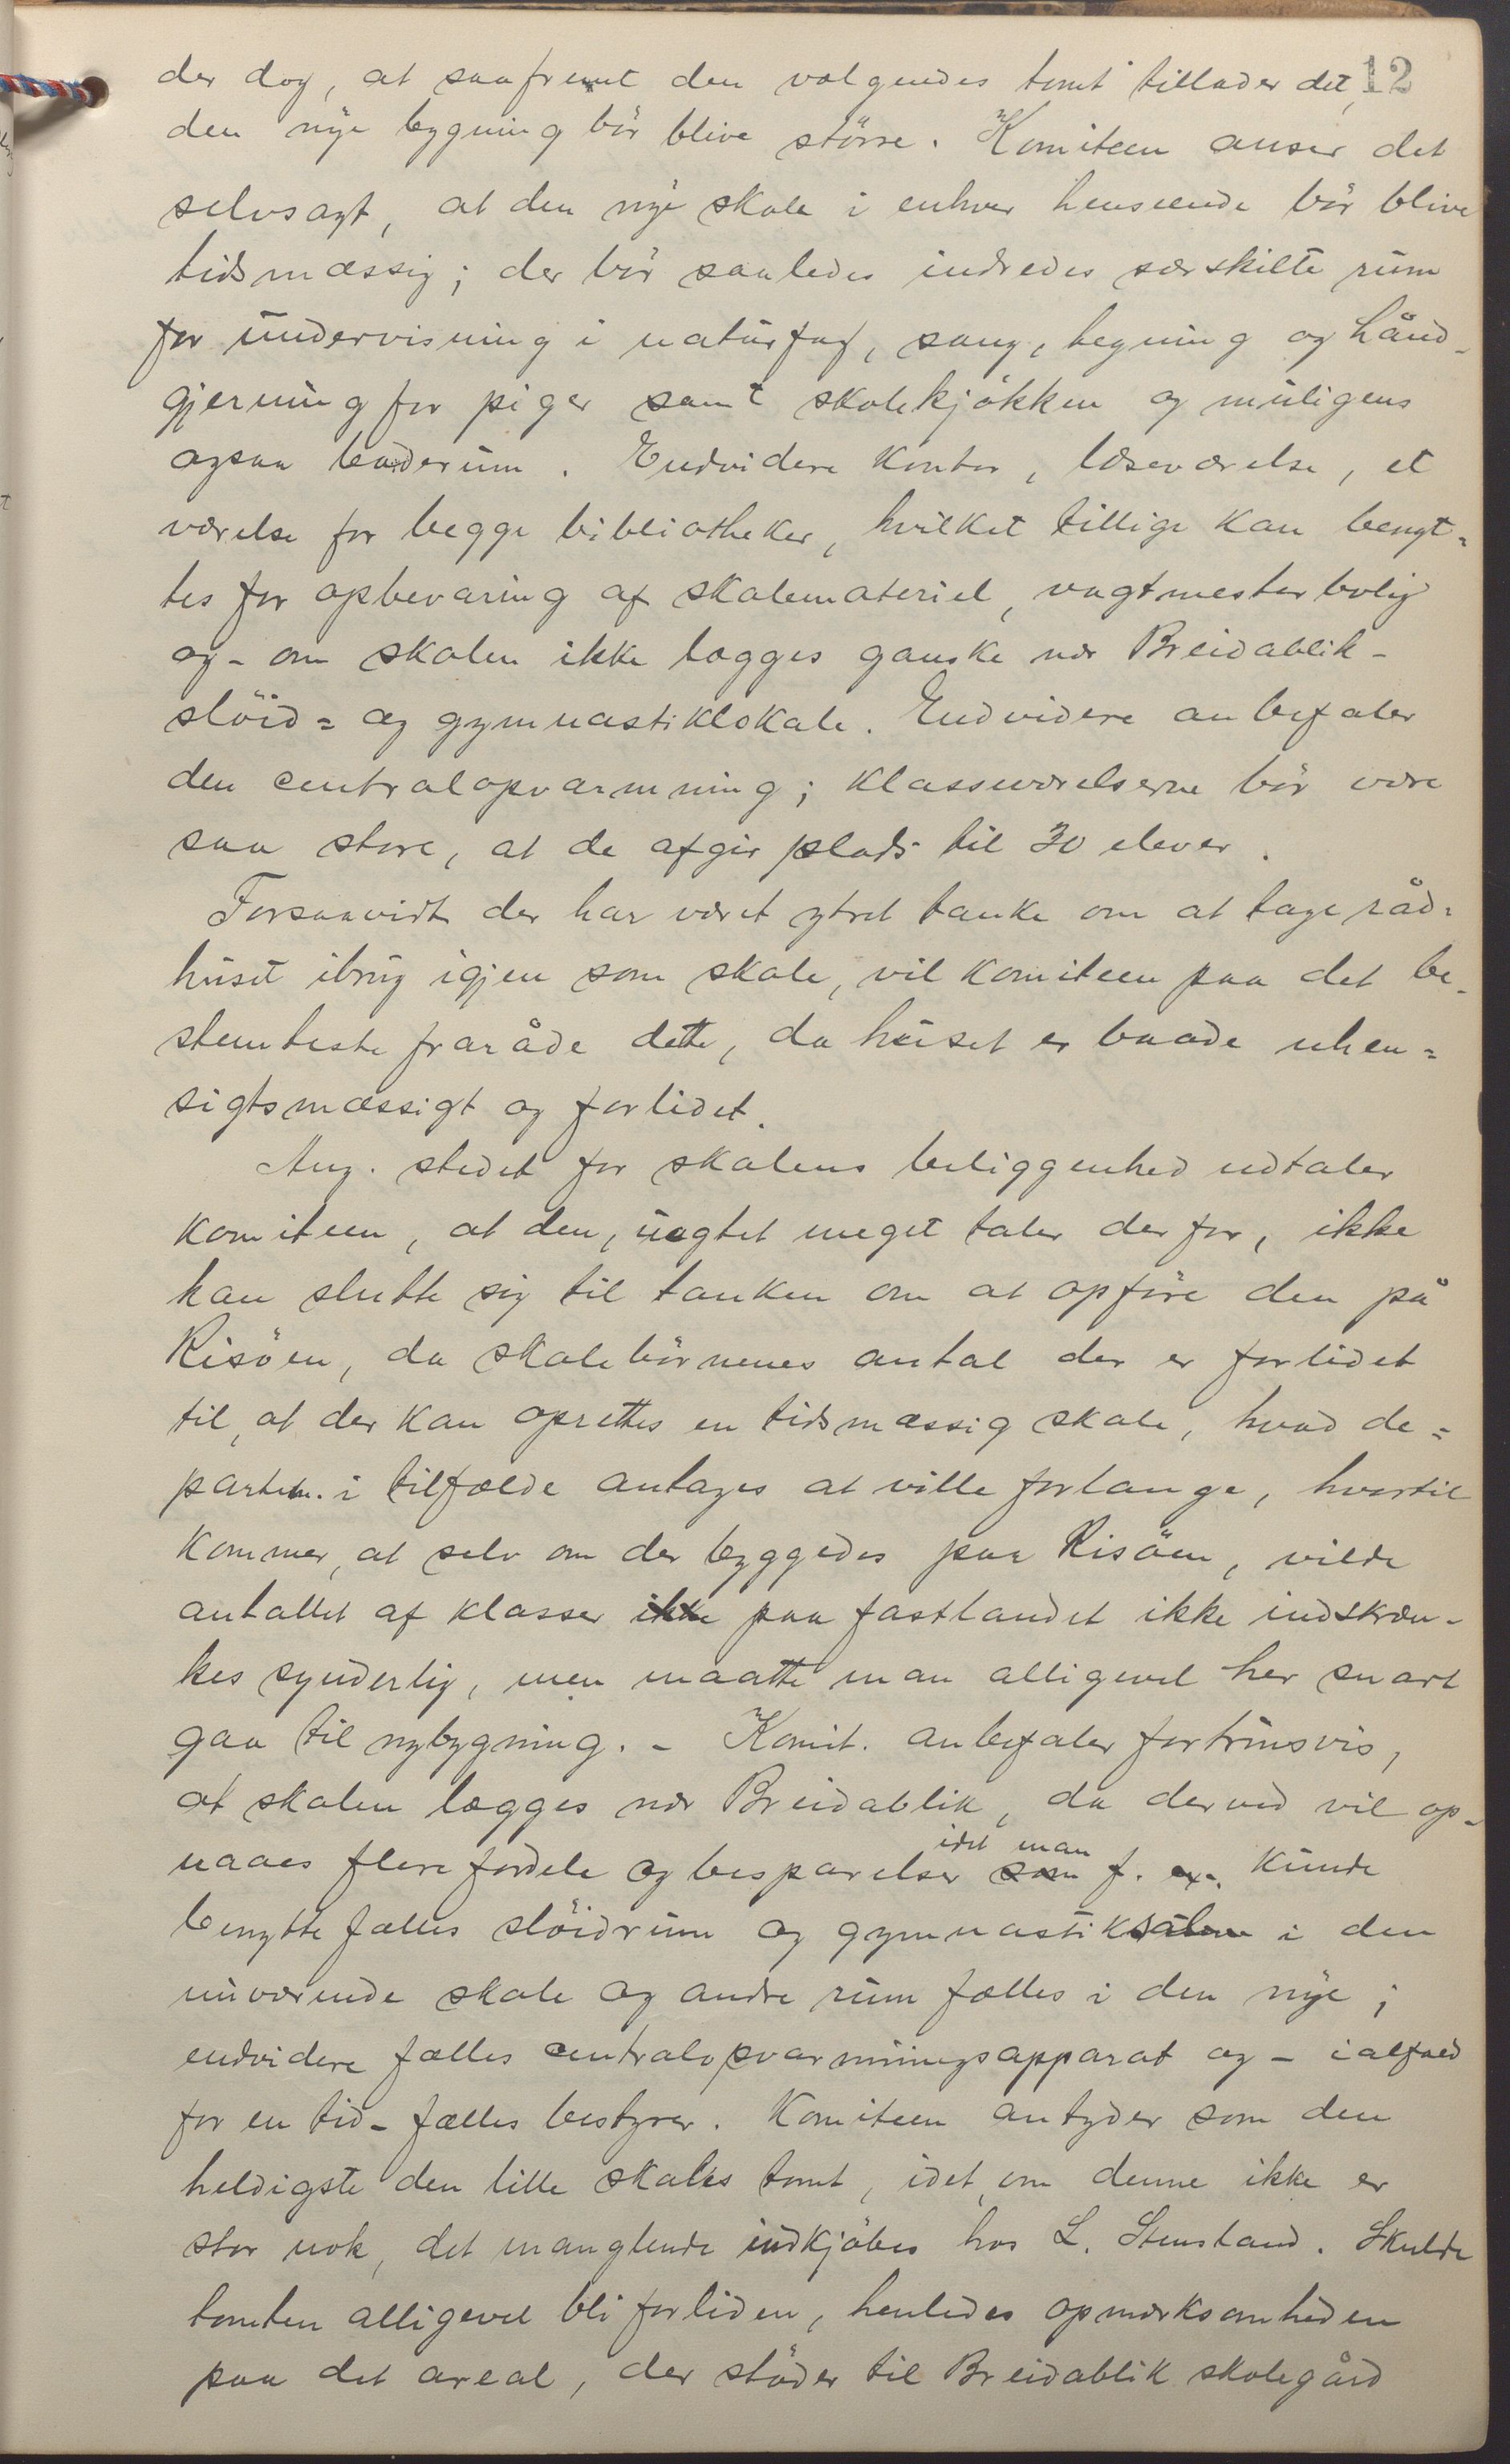 der dog, at saafremt den valgendes tomt tillader det, 12
den nye bygning bör blive större. Komiteen anser det
selvsagt, at den nye skole i enhver henseende bör blive
tidsmæssig; der bör saaledes indredes særskilte rum
for undervisning i naturfag, sang, tegning og hånd-
gjerning for piger samt skolekjökken og muligens
ogsaa baderum. Endvidere kontor, læseværelse, et
værelse for begge bibliotheker, hvilket tillige kan benyt=
tes for opbevaring af skolemateriel, vagtmesterbolig
og - om skolen ikke lægges ganske nær Breidablik -
slöid= og gymnastiklokale. Endvidere anbefaler
den centralopvarmning; klasseværelserne bör være
saa store, at de afgir plads til 30 elever.
Forsaavidt der har været ytret tanke om at tage råd=
huset ibrug igjen som skole, vil komiteen paa det be-
stemteste fraråde dette, da huset er baade uhen=
sigtsmæssigt og forlidet.
Ang. stedet for skolens beliggenhed udtaler
komiteen, at den, uagtet meget taler derfor, ikke
kan slutte sig til tanken om at opföre den på
Risöen, da skolebörnenes antal der er forlidet
til, at der kan oprettes en tidsmæssig skole, hvad de=
partem. i tilfælde antages at ville forlange, hvortil
kommer, at selv om der byggedes paa Risöen, vilde
antallet af klasser ikke paa fastlandet ikke indskræn-
kes synderlig, men maatte man alligevel her snart
gaa til nybygning. - Komit. anbefaler fortrinsvis,
at skolen lægges nær Breidablik, da derved vil op-
naaes flere fordele og besparelser som idet man f. ex. kunde
benytte fælles slöidrum og gymnastiksalen i den
nuværende skole og andre rum fælles i den nye;
endvidere fælles centralopvarmningsapparat og - ialfald
for en tid - fælles bestyrer. Komiteen antyder som den
heldigste den lille skoles tomt, idet, om denne ikke er
stor nok, det manglende indkjöbes hos L. Stensland. Skulde
tomten alligevel bli forliden, henledes opmærksomheden
paa det areal, der stöder til Breidablik skolegård